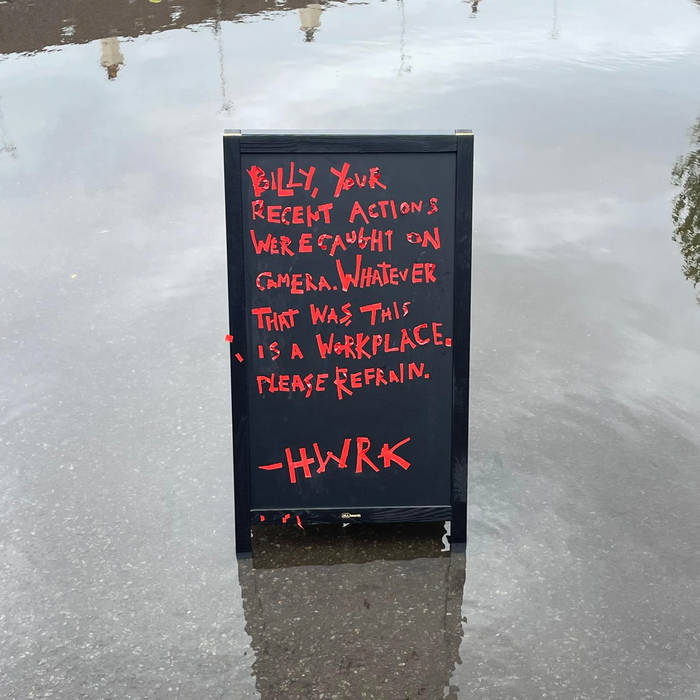 BILLY, YOUR
RECENT ACTIONS
WERE CAUGHT ON
CAMERA. WHATEVER
THAT WAS THIS
IS A WORKPLACE.
PLEASE REFRAIN.
-HWRK